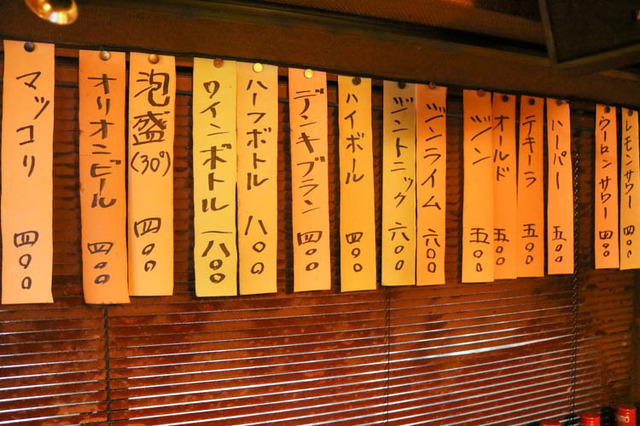 レモンサワー 四〇〇
ウーロンサワー 四〇〇
ハーパー 五〇〇
テキーラ 五〇〇
オールド 五〇〇
ジン 五〇〇
ジンライム 六〇〇
ジントニック 六〇〇
ハイボール 四〇〇
デンキブラン 四〇〇
ハーフボトル 八〇〇
ワインボトル 一八〇〇
泡盛(30°) 四〇〇
オリオンビール 四〇〇
マッコリ 四〇〇